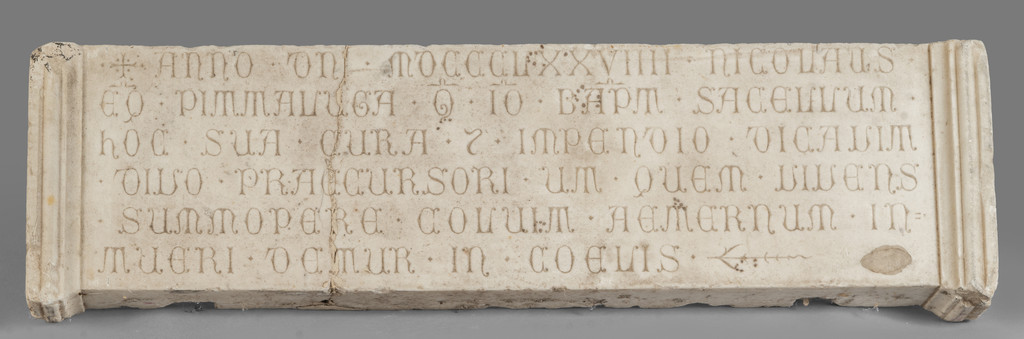 ✠ ANNO · DN · MCCCCLXXVIIII · NICOLAUS
EQ · PITTALUGA · Q · IO · BAPT · SACELLUM ·
hOC · SUA · CURA · 7 · IMPENDIO · DICAVIT
· DIVO · PRAECURSORI · UT · QUEM · VIVENS
SUMMOPERE · COLUIT · AETERNUM · IN=
TUERI · DETUR · IN · COELIS ·